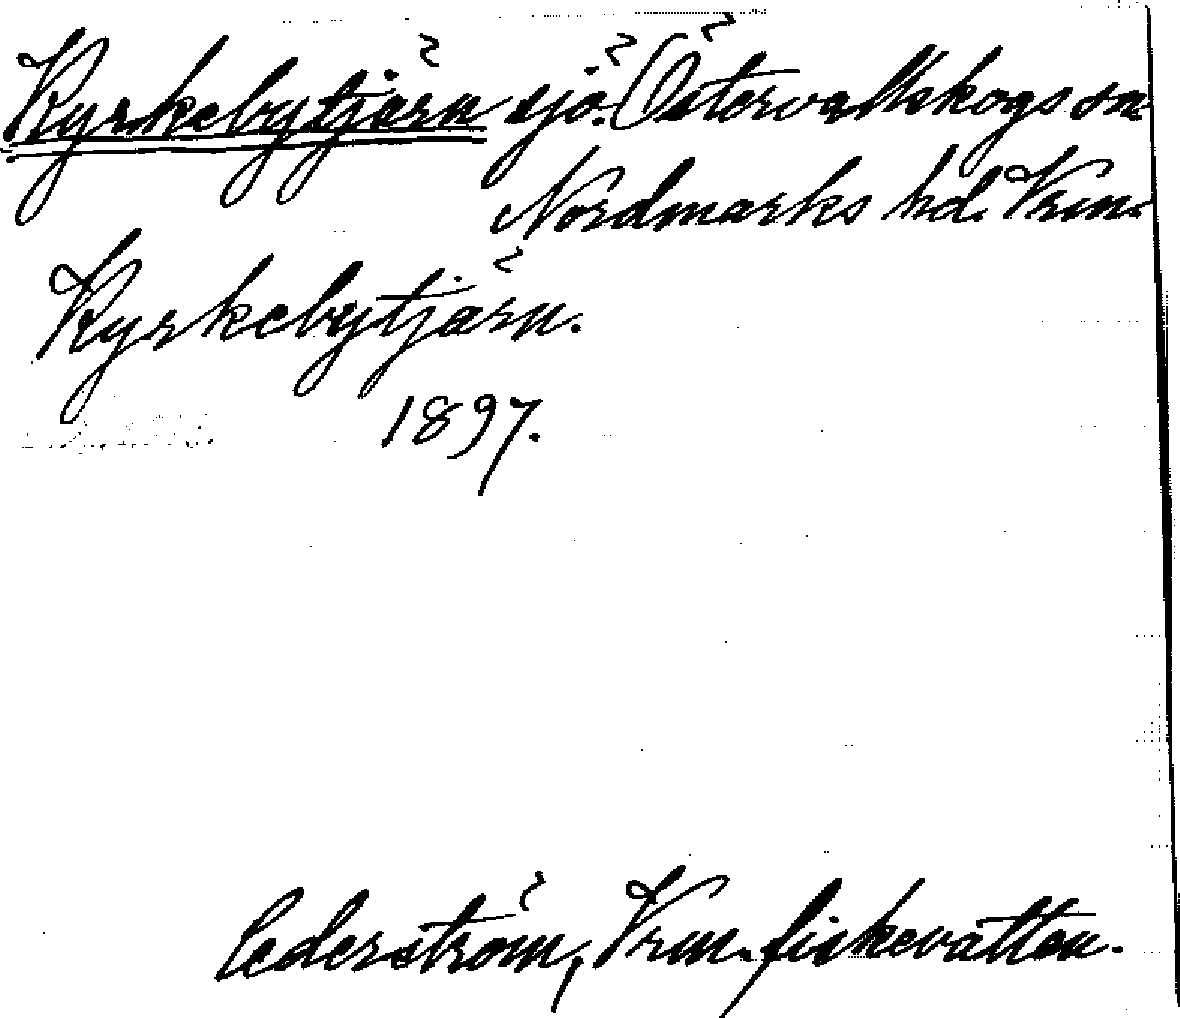 Kyrkebytjärn sjö. Östervallskogs sn
Nordmarks hd. Vrm.
Kyrkebytjärn.
1897.
Cederström, Vrm. fiskevatten.